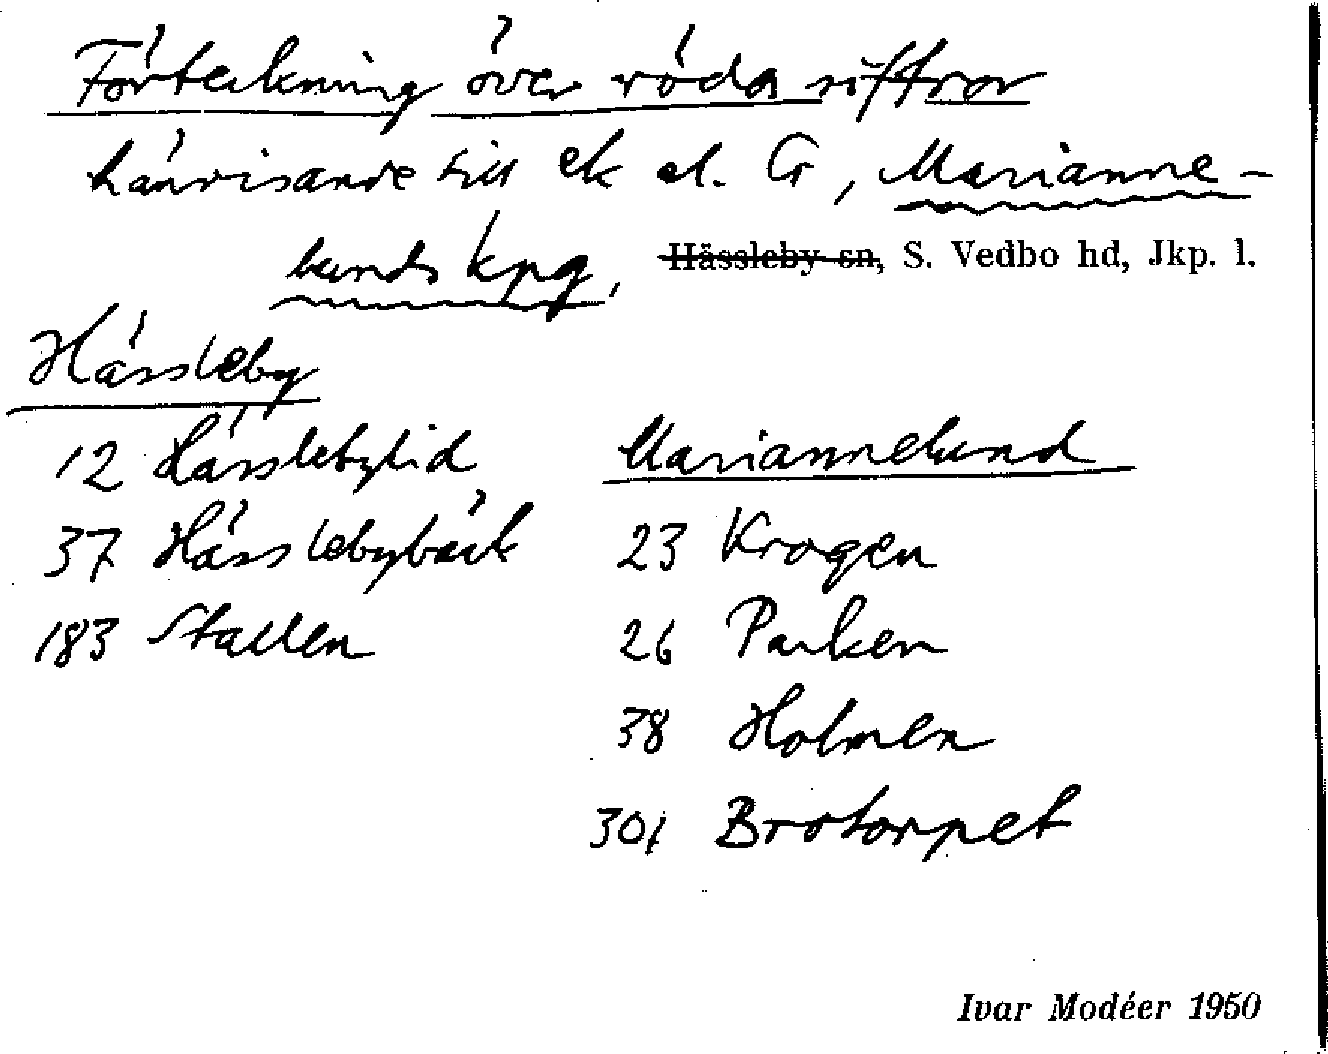 Förteckning över röda siffror
hänvisande till ek el. G, Marianne-
lunds kpg, Hässleby sn, S. Vedbo hd, Jkp. l.
Hässleby
12 Hässlebylid
37 Hässlebybäck
183 Stallen
Mariannelund
23 Krogen
26 Parken
38 Holmen
301 Brotorpet
Ivar Modéer 1950